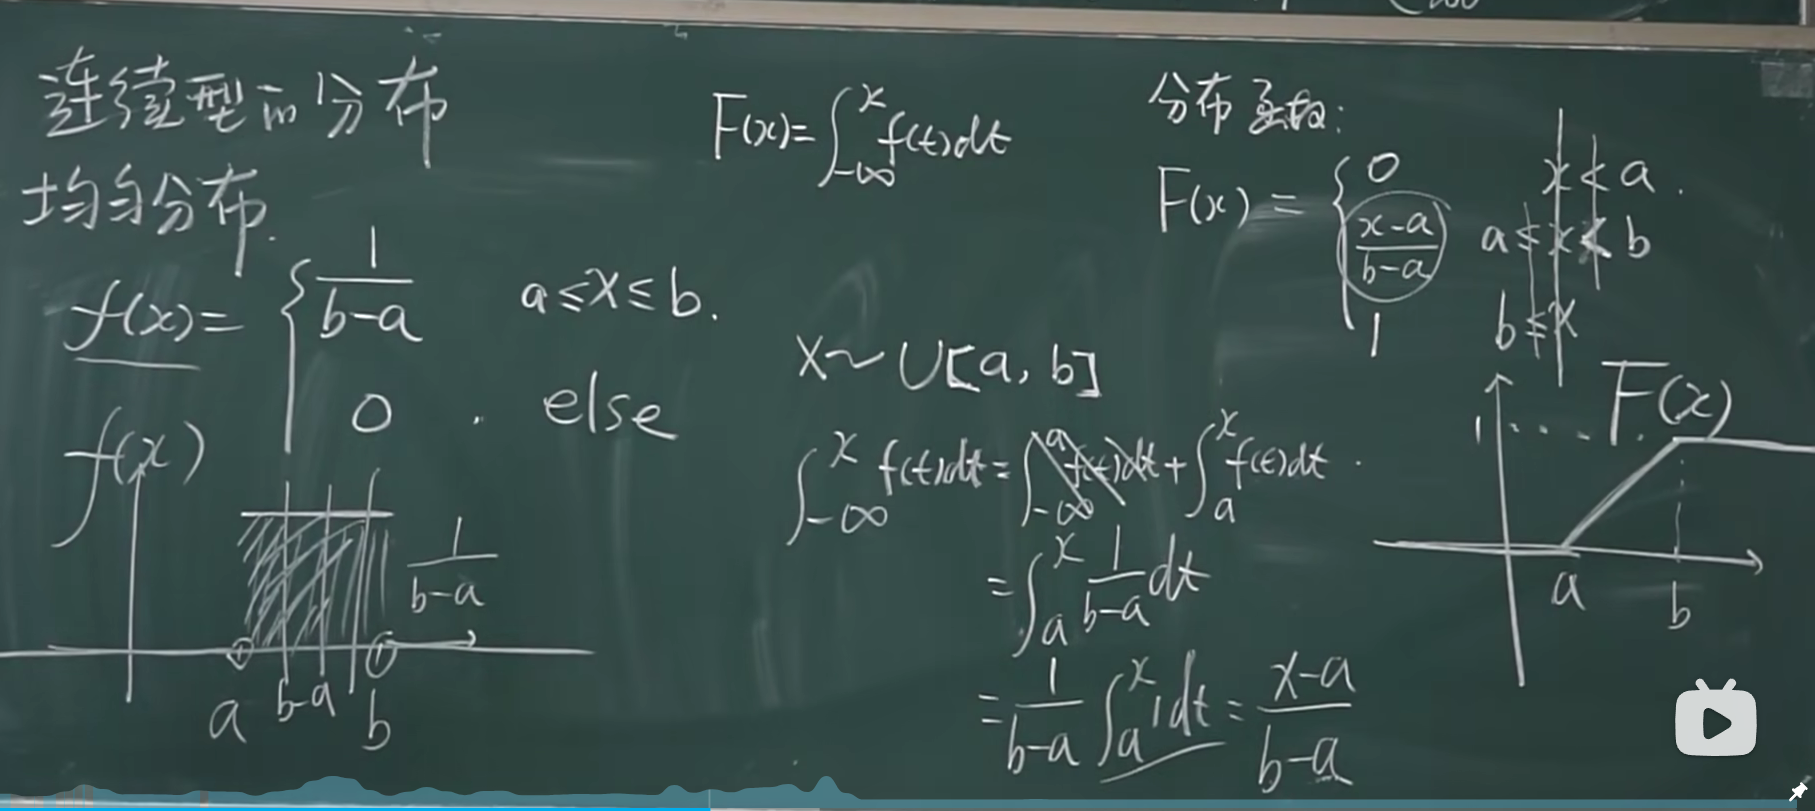 连续型的分布
均匀分布.
f(x)= { 1/(b-a)   a≤x≤b.
0 . else
f(x)
1/(b-a)
a b-a b
F(x)=∫_{-∞}^{x} f(t)dt
X~U[a,b]
∫_{-∞}^{x} f(t)dt=∫_{-∞}^{a} f(t)dt+∫_{a}^{x} f(t)dt.
=∫_{a}^{x} 1/(b-a) dt
=1/(b-a) ∫_{a}^{x} 1dt=(x-a)/(b-a)
分布函数:
F(x) = { 0   x<a.
(x-a)/(b-a)   a≤x<b
1   b≤x
F(x)
1
a b